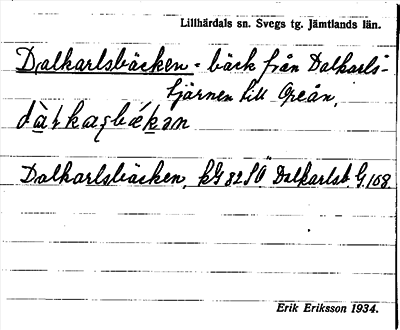 Lillhärdals sn. Svegs tg. Jämtlands län.
Dalkarlsbäcken = bäck från Dalkarls-
tjärnen till Oreån,
Dalkarlsbäcken, kG 82 SÖ Dalkarlsb. G. 168
Erik Eriksson 1934.